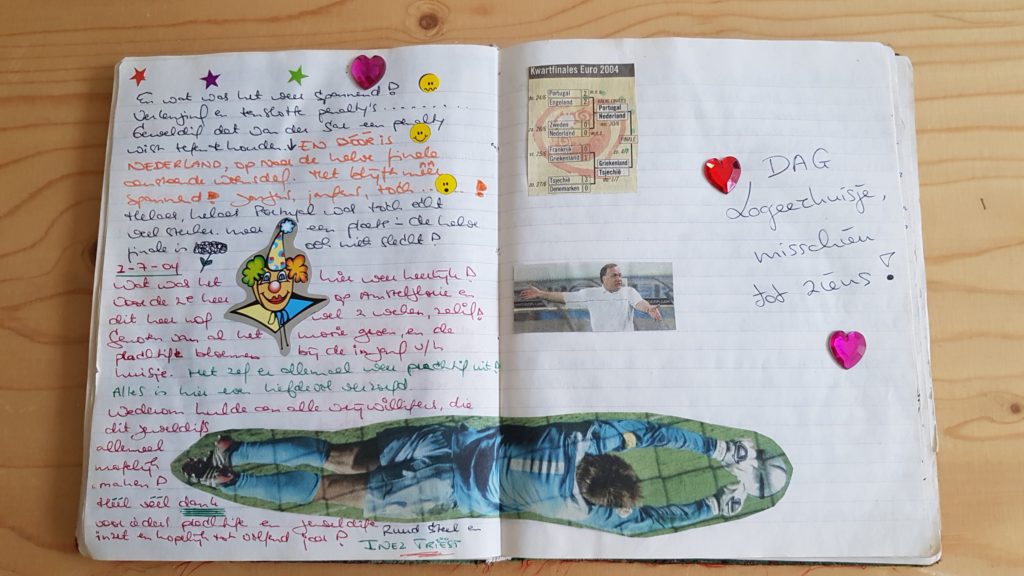 En wat was het weer spannend!
Verlenging en tenslotte penalty's..........
Geweldig dat van der Sar een penalty
wist tegen te houden EN DÓÓR IS
NEDERLAND, op naar de halve finale
aanstaande woensdag. Het blijft
spannend! jonges, toch....!
Helaas, helaas Portugal was toch echt
veel sterker, maar een plaats in de halve
finale is ook niet slecht!
2-7-04
Wat was het hier weer heerlijk!
Voor de 2e keer op Amstelglorie en
dit keer wel 2 weken, zalig!
Genoten van al het mooie groen en de
prachtige bloemen bij de ingang v/h
huisje. Het zag er allemaal weer prachtig uit!
Alles is hier een liefdevol verzorgd.
Wederom hulde aan alle vrijwilligers, die
dit geweldigs
allemaal
mogelijk
maken!
Heel veel dank
voor ieders prachtige en geweldige
inzet en hopelijk tot volgend jaar!
Ruud Steel en
INEZ TRIEST
Kwartfinales Euro 2004
do. 24/6
Portugal 2
Engeland 2
Portugal
Nederland
za. 26/6
Zweden 0
Nederland 0
vr. 25/6
Frankrijk 0
Griekenland 1
Griekenland
Tsjechië
zo. 27/6
Tsjechië 3
Denemarken 0
DAG
Logeerhuisje,
misschien
tot ziens!